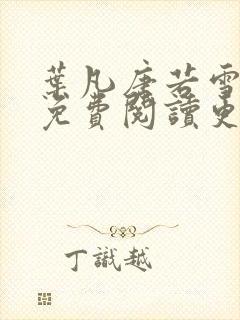 葉凡唐若雪
免費閱讀更
丁識越